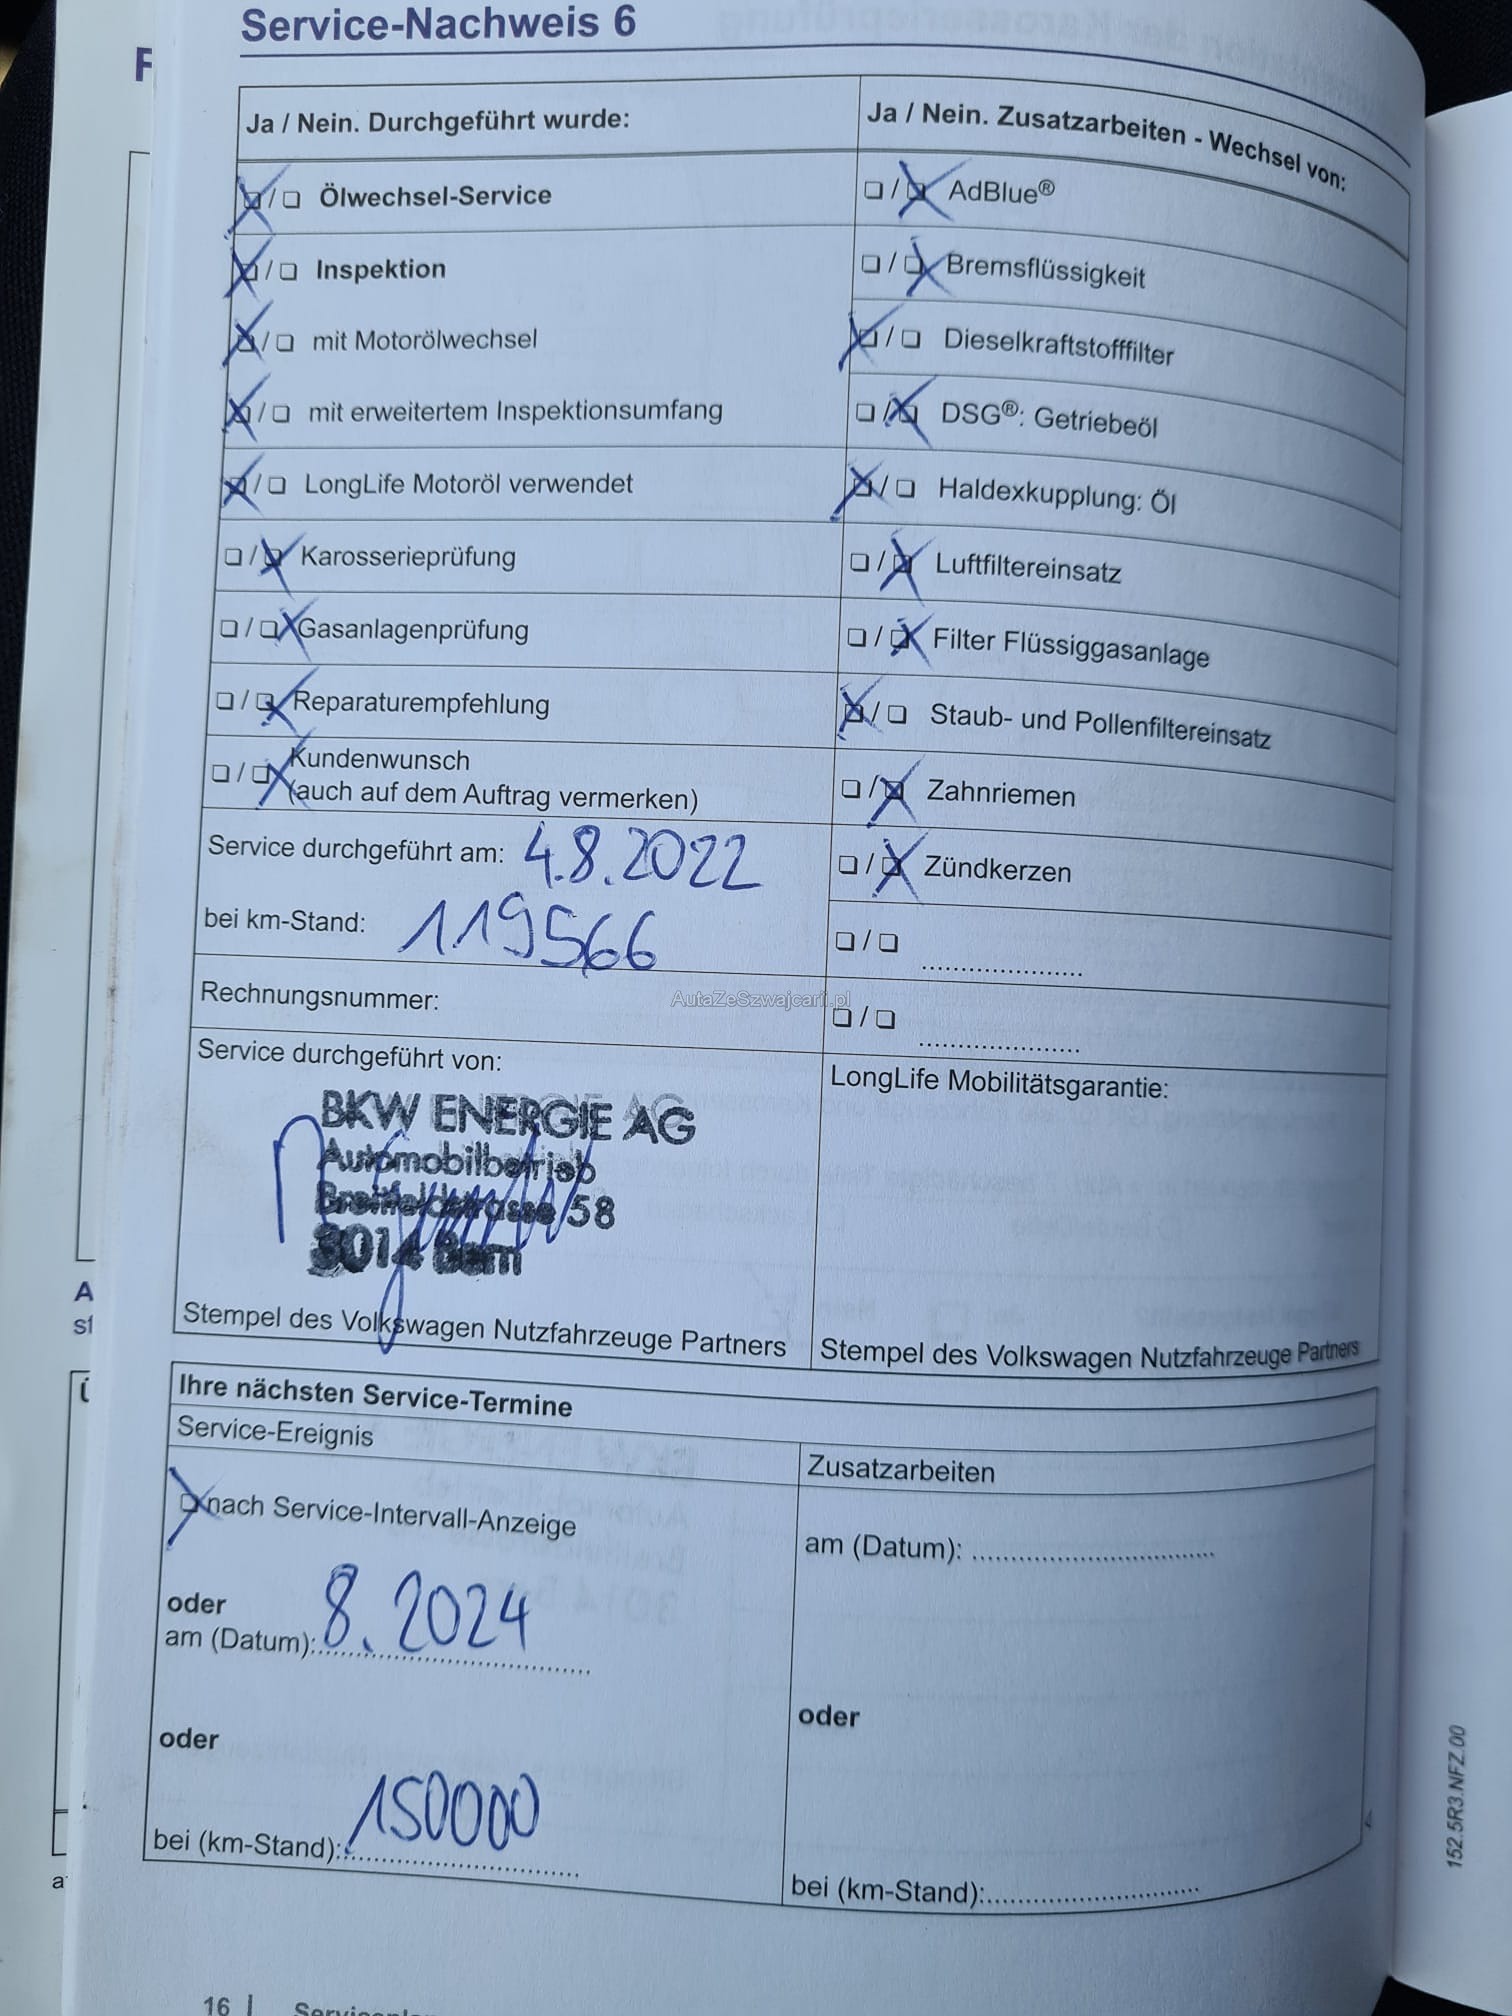 Service-Nachweis 6
F
Ja / Nein. Durchgeführt wurde:
❏ / ❏ Ölwechsel-Service
❏ / ❏ Inspektion
❏ / ❏ mit Motorölwechsel
❏ / ❏ mit erweitertem Inspektionsumfang
❏ / ❏ LongLife Motoröl verwendet
❏ / ❏ Karosserieprüfung
❏ / ❏ Gasanlagenprüfung
❏ / ❏ Reparaturempfehlung
❏ / ❏ Kundenwunsch
(auch auf dem Auftrag vermerken)
Service durchgeführt am: 4.8.2022
bei km-Stand: 119566
Rechnungsnummer:
Service durchgeführt von:
BKW ENERGIE AG
Automobilbetrieb
Breitfeldstrasse 58
3014 Bern
Stempel des Volkswagen Nutzfahrzeuge Partners
Ja / Nein. Zusatzarbeiten - Wechsel von:
❏ / ❏ AdBlue®
❏ / ❏ Bremsflüssigkeit
❏ / ❏ Dieselkraftstofffilter
❏ / ❏ DSG®: Getriebeöl
❏ / ❏ Haldexkupplung: Öl
❏ / ❏ Luftfiltereinsatz
❏ / ❏ Filter Flüssiggasanlage
❏ / ❏ Staub- und Pollenfiltereinsatz
❏ / ❏ Zahnriemen
❏ / ❏ Zündkerzen
❏ / ❏ .....................
❏ / ❏ .....................
LongLife Mobilitätsgarantie:
Stempel des Volkswagen Nutzfahrzeuge Partners
AutaZeSzwajcarii.pl
Ihre nächsten Service-Termine
Service-Ereignis
❏ nach Service-Intervall-Anzeige
oder
am (Datum): 8.2024
oder
bei (km-Stand): 150000
Zusatzarbeiten
am (Datum): ...............................
oder
bei (km-Stand):...........................
152.5R3.NFZ.00
16